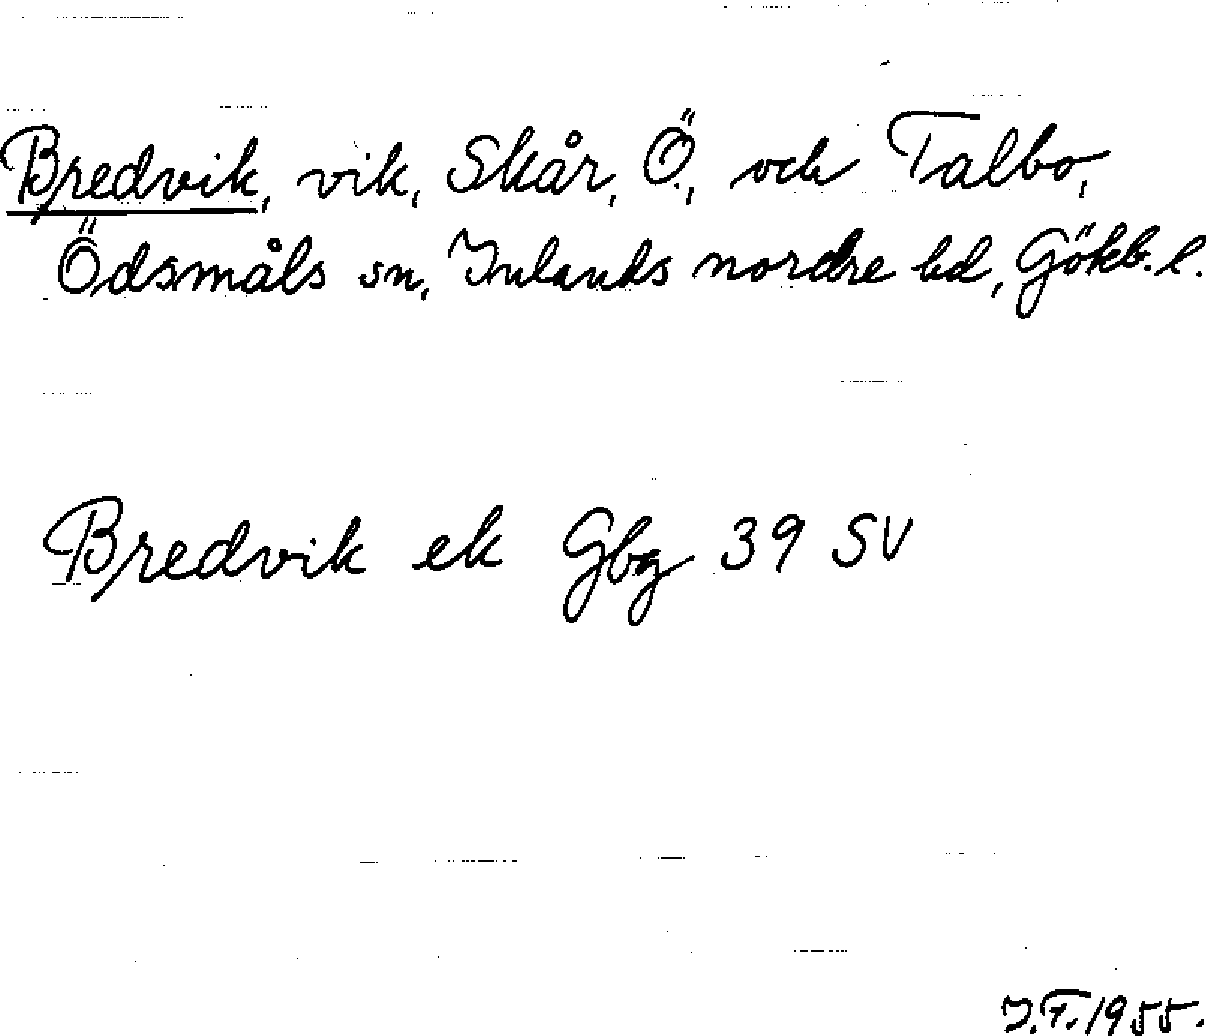 Bredvik, vik, Skår, Ö., och Talbo,
Ödsmåls sn, Inlands nordre hd, Gökb. l.
Bredvik ek Gbg 39 SV
J.F. 1955.